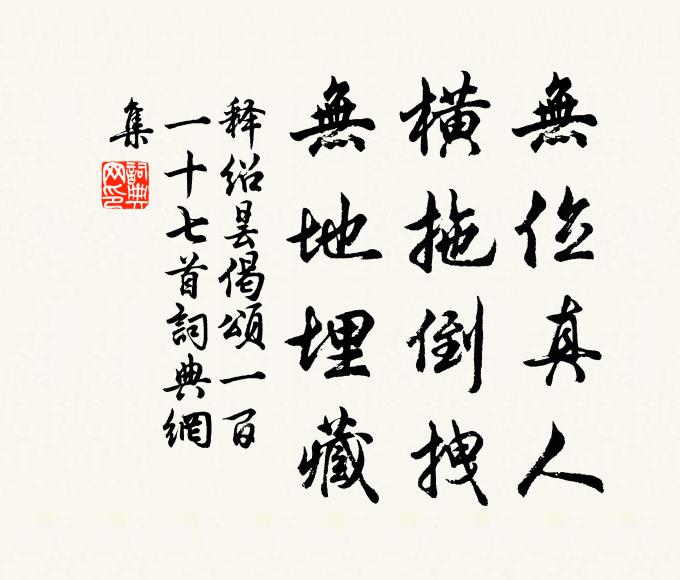 無位真人
橫拖倒拽
無地埋藏
释绍昙偈頌一百
一十七首詞典網
集
詞典
网印